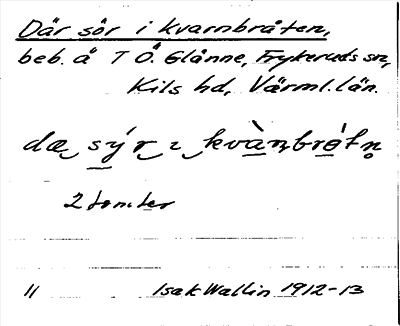 Där sör i kvarnbråten,
beb. å T Ö. Glänne, Frykeruds sn,
Kils hd, Värml. län.
dæ sýr ı kvànbrǿtn̥
2 tomter
11 Isak Wallin 1912-13